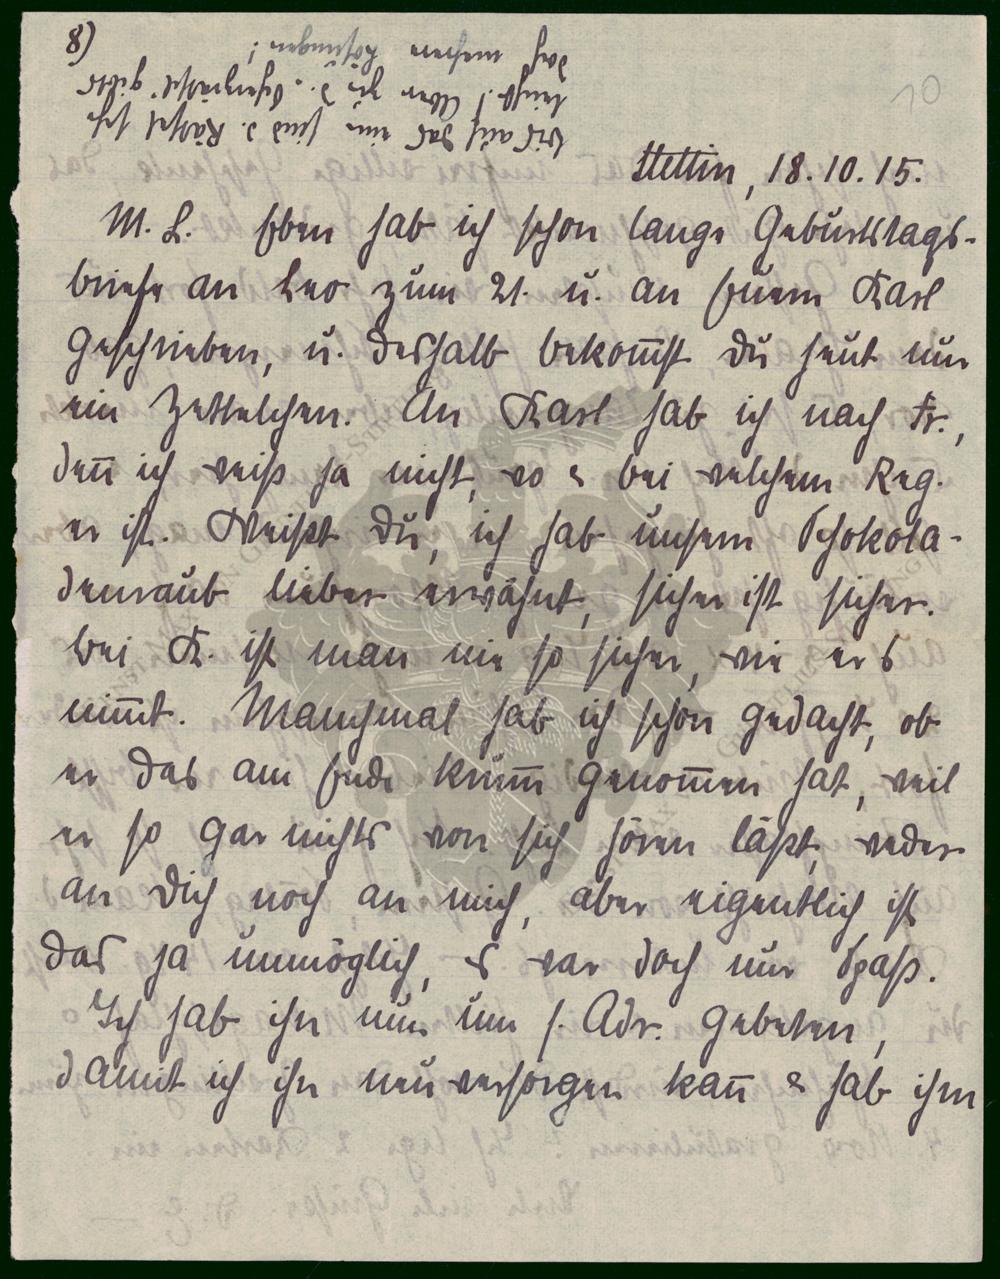 8)
10
bis auf das ein sind d. Rätsel sehr
leicht! Aber zu d. gibts
doch mehrere Lösungen!
Stettin, 18.10.15.
M. L. Eben hab ich schon lange Geburtstags-
briefe an Leo zum 21. u. an Euern Karl
geschrieben, u. deshalb bekom̄st du heut nur
ein Zettelchen. An Karl hab ich nach Fr.,
den̄ ich weiß ja nicht, wo & bei welchem Reg.
er ist. Weißt Du, ich hab unsern Schokola-
denraub lieber erwähnt, sicher ist sicher.
bei K. ist man nie so sicher, wie ers
nim̄t. Manchmal hab ich schon gedacht, ob
er das am Ende krum̄ genom̄en hat, weil
er so gar nichts von sich hören läßt, weder
an Dich noch an mich, aber eigentlich ist
das ja unmöglich, s war doch nur Spaß.
Ich hab ihn nun um s. Adr. gebeten,
damit ich ihn neu versorgen kan̄ & hab ihm